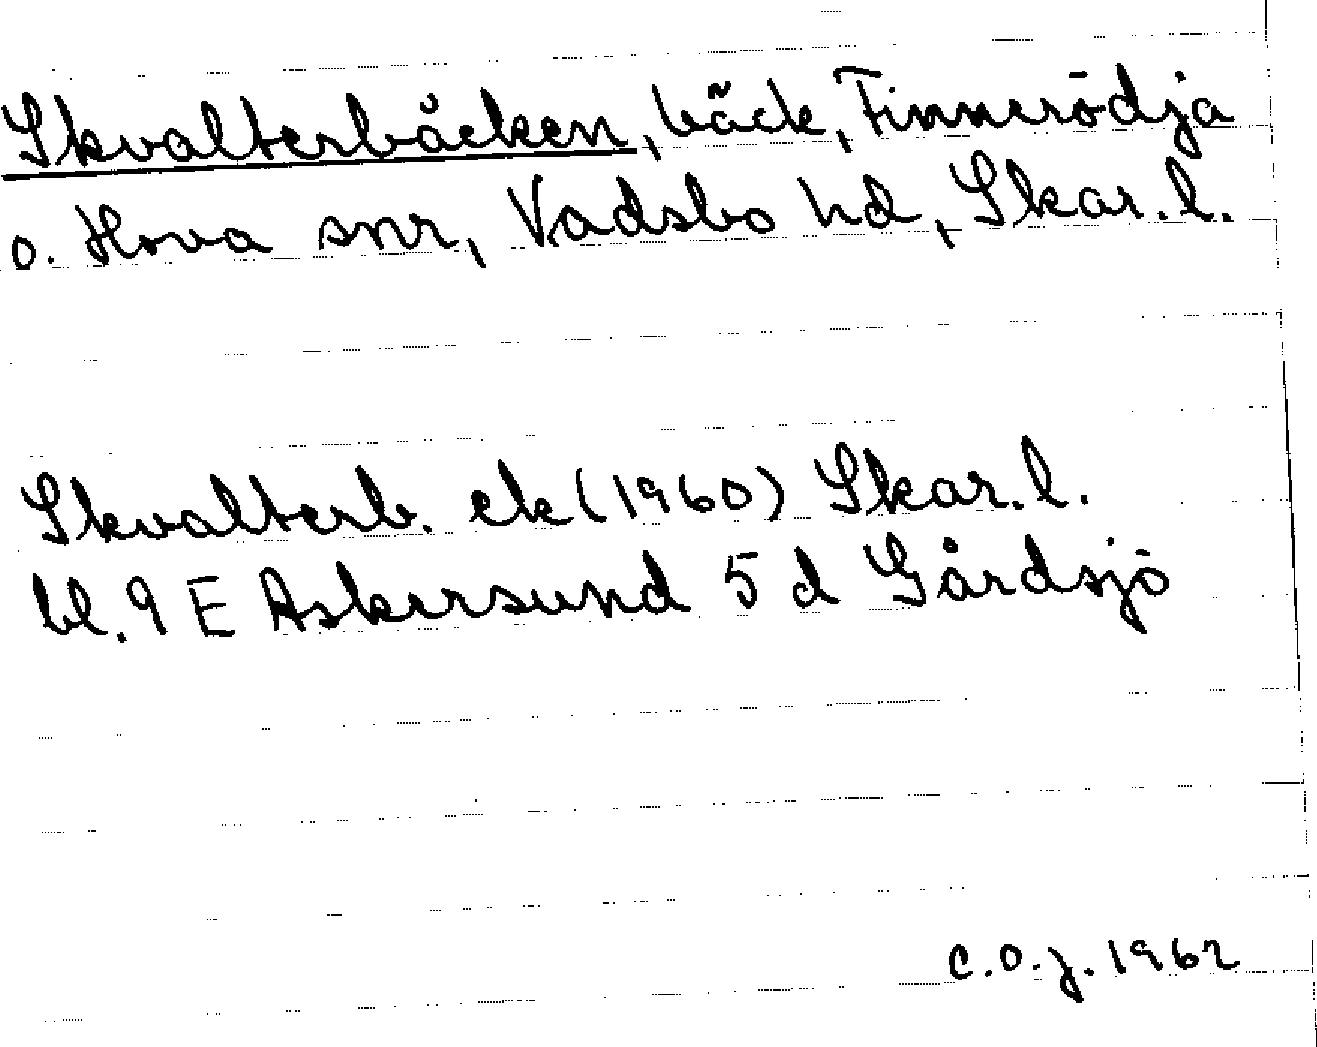 Skvalterbäcken, bäck, Finnerödja
o. Hova snr, Vadsbo hd, Skar. l.
Skvalterb. ek (1960) Skar. l.
bl. 9 E Askersund 5 d Gårdsjö
C.O.J. 1962